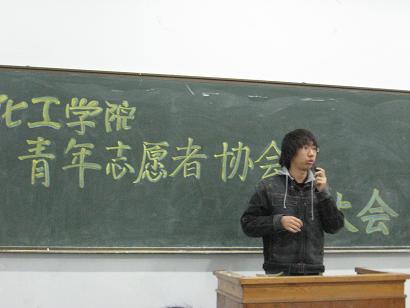 化工学院
青年志愿者协会
大会